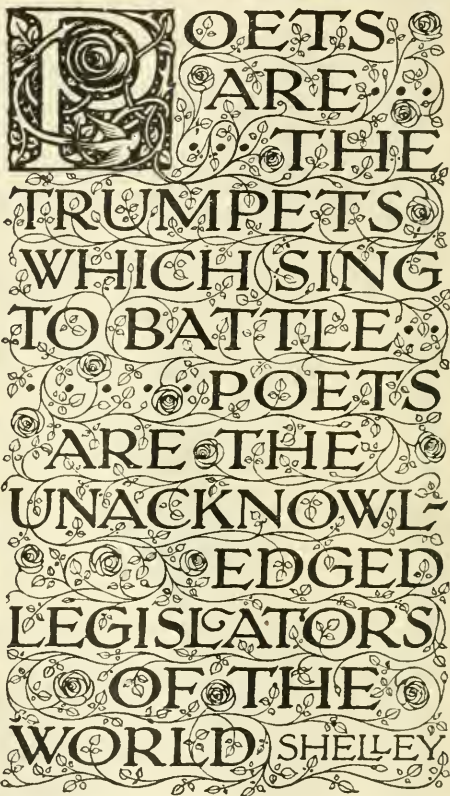 POETS
ARE
THE
TRUMPETS
WHICH SING
TO BATTLE:
POETS
ARE THE
UNACKNOWL-
EDGED
LEGISLATORS
OF THE
WORLD SHELLEY